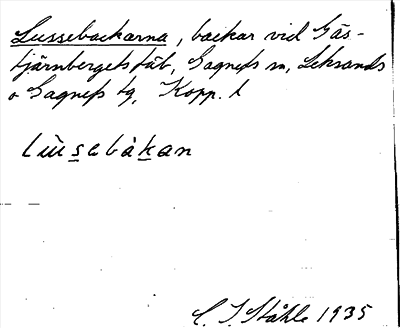 Lussebackarna, backar vid Gäs-
tjärnbergets fäb, Gagnefs sn, Leksands
o Gagnefs tg, Kopp. l
lüsebàkan
C. I. Ståhle 1935